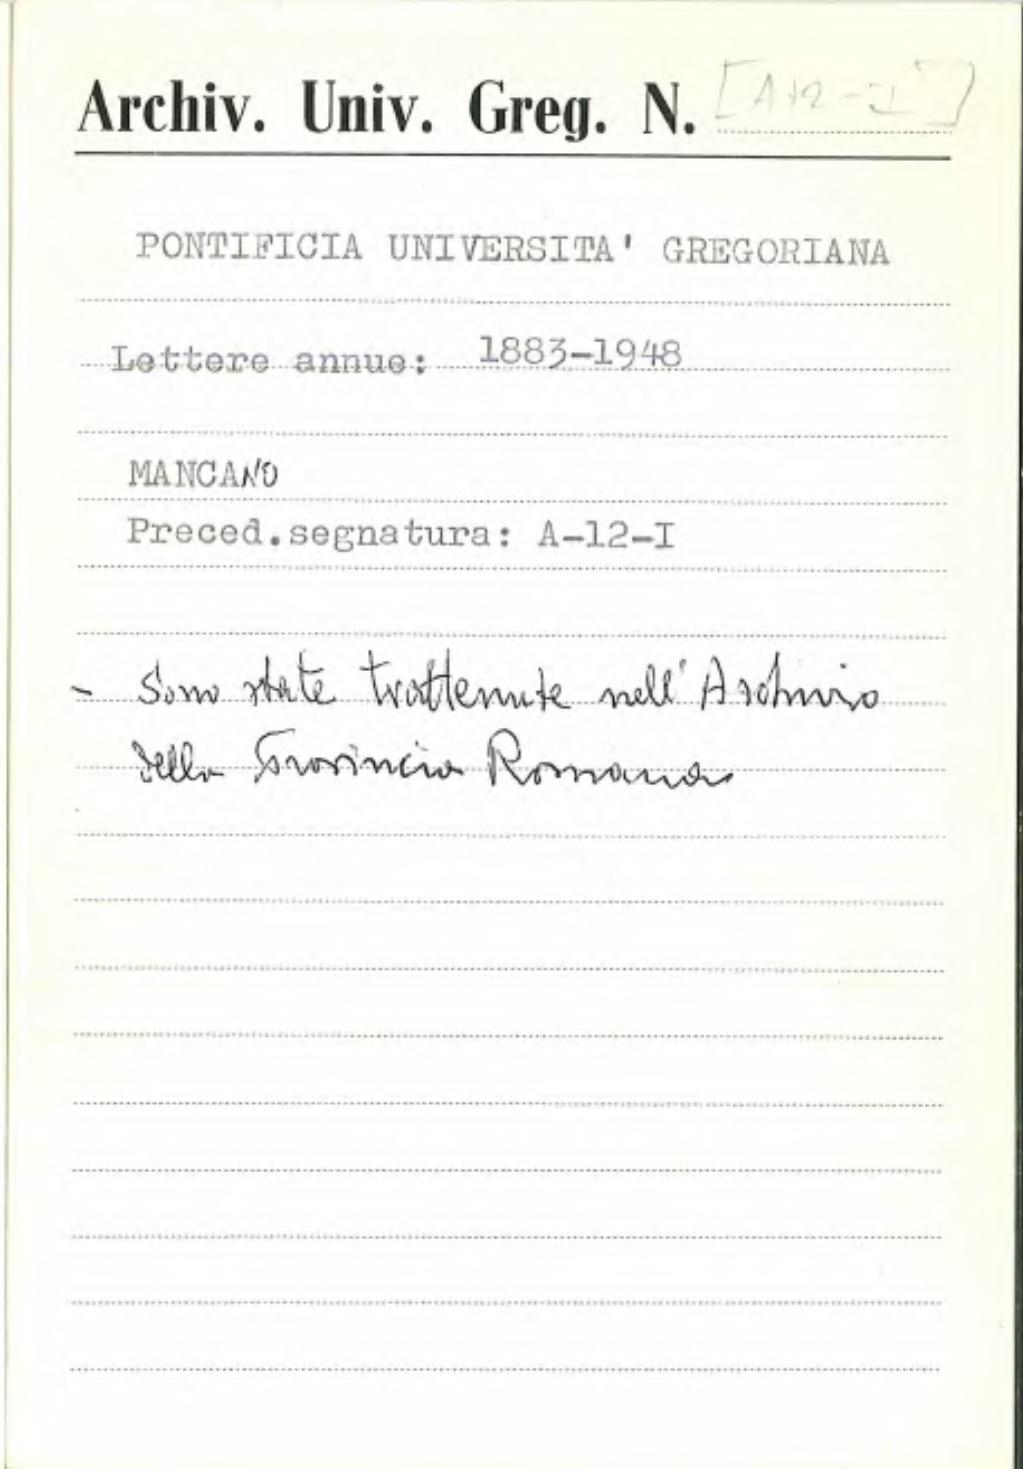 Archiv. Univ. Greg. N. [A-12-I]
PONTIFICIA UNIVERSITA' GREGORIANA
Lettere annue: 1883-1948
MANCANO
Preced.segnatura: A-12-I
- Sono state trattenute nell'Archivio
della Provincia Romana